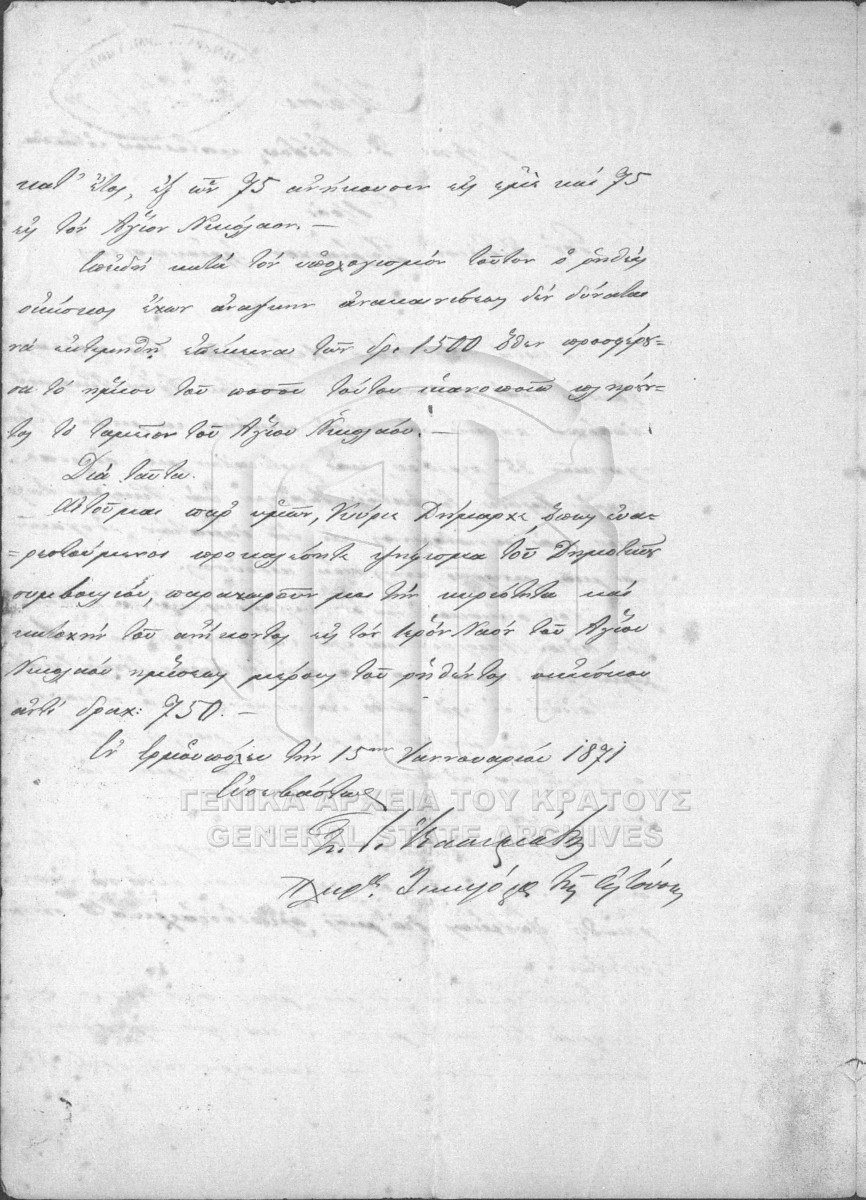 κατ' ἔτος, ἐξ ὧν 75 ἀνήκουσιν εἰς ἐμὲ καὶ 75
εἰς τὸν Ἅγιον Νικόλαον. —
Ἐπειδὴ κατὰ τὸν ὑπολογισμὸν τοῦτον ὁ ῥηθεὶς
οἰκίσκος ἔχων ἀνάγκην ἀνακαινίσεως δὲν δύναται
νὰ ἐκτιμηθῇ ἐπέκεινα τῶν δρ. 1500 ὅθεν προσφέρω=
τὸ ἥμισυ τοῦ ποσοῦ τούτου ἱκανοποιῶ πληρέσ=
τὸ ταμεῖον τοῦ Ἁγίου Νικολάου. —
Διὰ ταῦτα.
Αἰτοῦμαι παρ' ὑμῶν, Κύριε Δήμαρχε ὅπως εὐα=
=ρεστούμενος προκαλέσητε ψήφισμα τοῦ Δημοτικοῦ
συμβουλίου, παραχωροῦν μοι τὴν κυριότητα καὶ
κατοχὴν τοῦ ἀνήκοντος εἰς τὸν Ἱερὸν Ναὸν τοῦ Ἁγίου
Νικολάου ἡμίσεως μέρους τοῦ ῥηθέντος οἰκίσκου
ἀντὶ δραχ: 750. —
Ἐν Ἑρμουπόλει τὴν 15ην Ἰαννουαρίου 1871
Εὐσεβάστως
ΓΕΝΙΚΑ ΑΡΧΕΙΑ ΤΟΥ ΚΡΑΤΟΥΣ
GENERAL STATE ARCHIVES